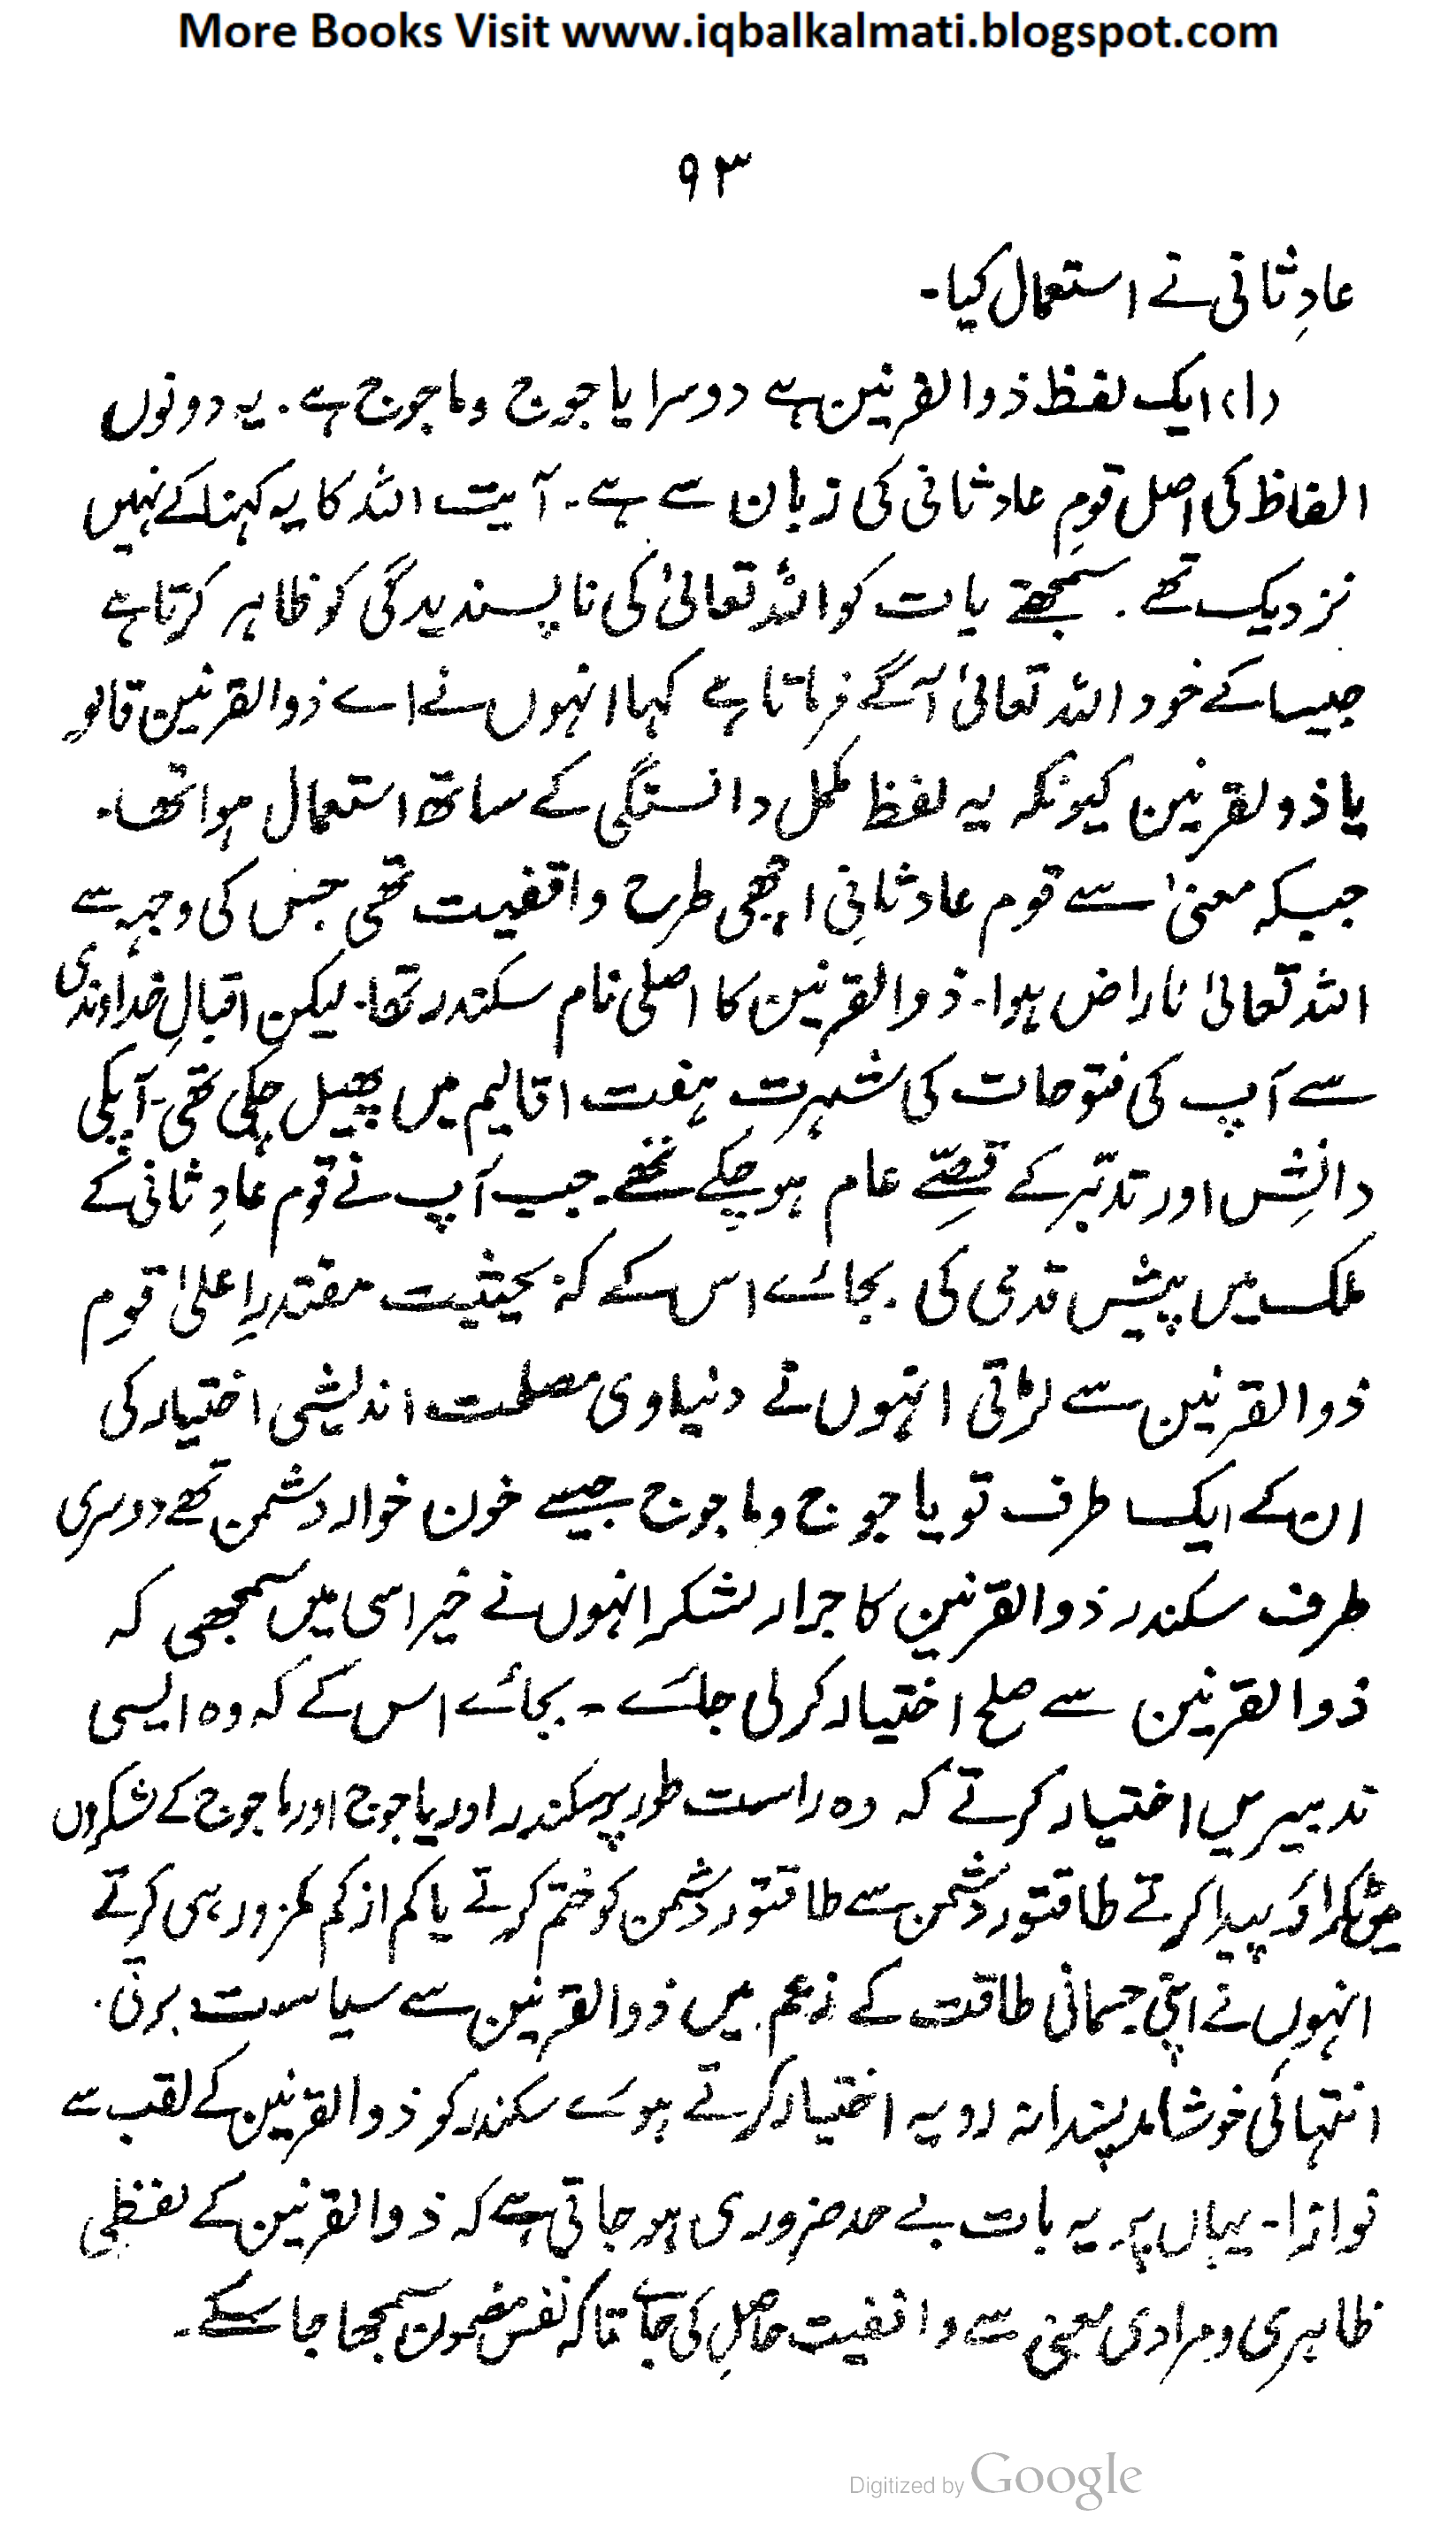 More Books Visit www.iqbalkalmati.blogspot.com
۹۳
عادِ ثانی نے استعمال کیا۔
(۱)، ایک لفظ ذوالقرنین ہے دوسرا یا جوج و ماجوج ہے۔ یہ دونوں
الفاظ کی اصل قومِ عاد ثانی کی زبان سے ہے۔ آیت اللہ کا یہ کہنا کے نہیں
نزدیک تھے۔ سمجھتے بات کو اللہ تعالیٰ کی ناپسندیدگی کو ظاہر کرتا ہے
جیسا کے خود اللہ تعالیٰ آگے فرماتا ہے کہا انہوں نے اے ذوالقرنین قالو
یا ذولقرنین کیونکہ یہ لفظ مکمل دانستگی کے ساتھ استعمال ہوا تھا۔
جبکہ معنیٰ سے قوم عاد ثانی اچھی طرح واقفیت تھی جس کی وجہہ سے
اللہ تعالیٰ ناراض ہوا۔ ذوالقرنین کا اصلی نام سکندر تھا۔ لیکن اقبالِ خداوندی
سے آپ کی فتوحات کی شہرت ہفت اقالیم میں پھیل چکی تھی۔ آپکی
دانش اور تدبّر کے قصّے عام ہو چکے تھے۔ جب آپ نے قوم عادِ ثانی کے
ملک میں پیش قدمی کی بجائے اس کے کہ بحیثیت مقتدرِ اعلیٰ قوم
ذوالقرنین سے لڑتی انہوں نے دنیاوی مصلحت اندیشی اختیار کی
ان کے ایک طرف تو یا جوج و ماجوج جیسے خون خوار دشمن تھے دوسری
طرف سکندر ذوالقرنین کا جرار لشکر انہوں نے خیر اسی میں سمجھی کہ
ذوالقرنین سے صلح اختیار کر لی جائے ۔ بجائے اس کے کہ وہ ایسی
تدبیریں اختیار کرتے کہ وہ راست طور پر سکندر اور یاجوج اور ماجوج کے لشکروں
میں ٹکراؤ پیدا کرتے طاقتور دشمن سے طاقتور دشمن کو ختم کرتے یا کم از کم کمزور ہی کرتے
انہوں نے اپنی جسمانی طاقت کے زعم میں ذوالقرنین سے سیاست برتی۔
انتہائی خوشامد پسندانہ رویہ اختیار کرتے ہوئے سکندر کو ذوالقرنین کے لقب سے
نوازا۔ یہاں پر یہ بات بے حد ضروری ہو جاتی ہے کہ ذوالقرنین کے لفظی
ظاہری و مرادی معنی سے واقفیت حاصل کی جائے تاکہ نفس مضمون سمجھا جا سکے۔
Digitized by Google